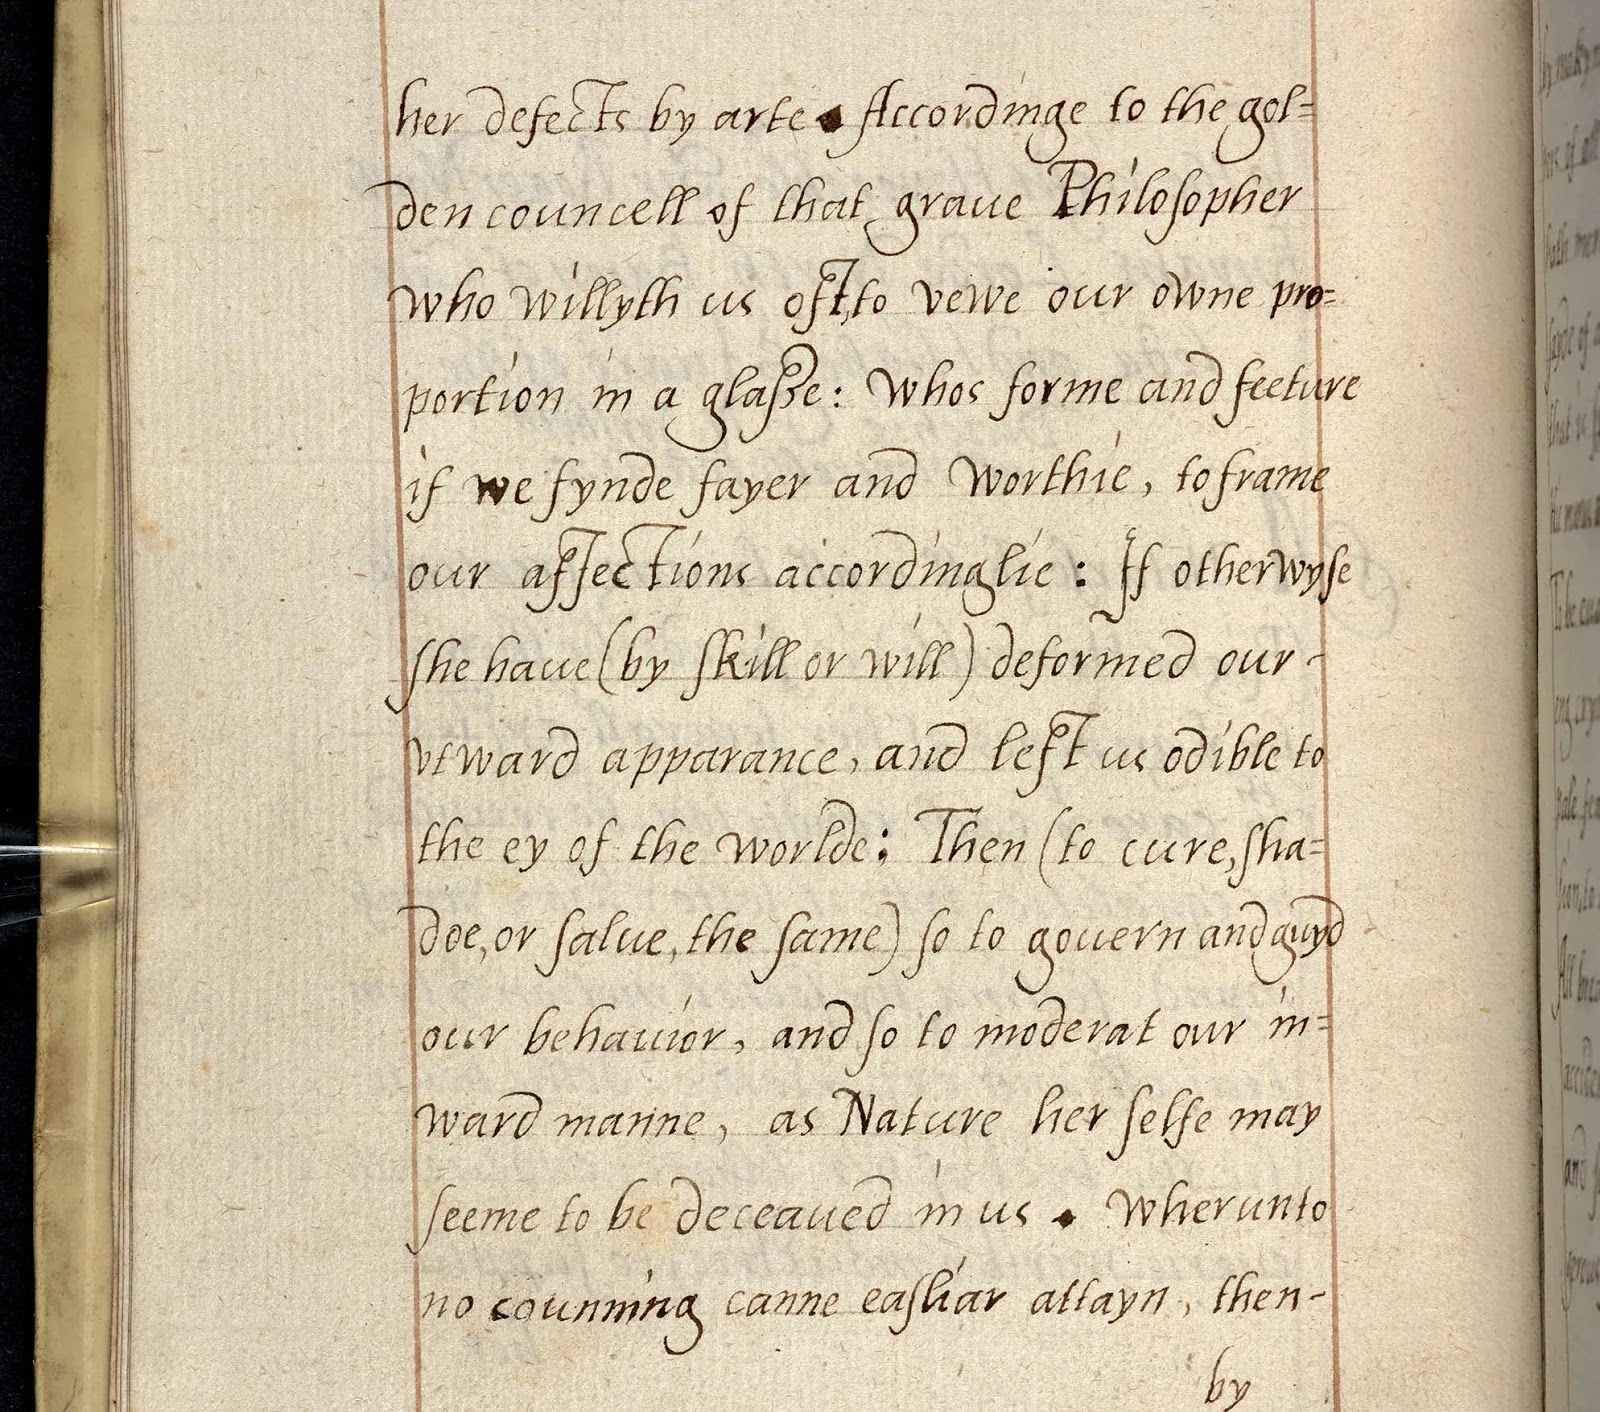 her defects by arte. Accordinge to the gol=
den councell of that graue Philosopher
who willyth us oft, to vewe our owne pro=
portion in a glasse: Whos forme and feeture
if we fynde fayer and worthie, to frame
our affections accordinglie: If otherwyse
she haue (by skill or will) deformed our-
utward apparance, and left us odible to
the ey of the worlde: Then (to cure, sha=
doe, or salue, the same) so to gouern and guyd
our behauior, and so to moderat our in=
ward manne, as Nature her selfe may
seeme to be deceaued in us. Wherunto
no counning canne easliar attayn, then-
by